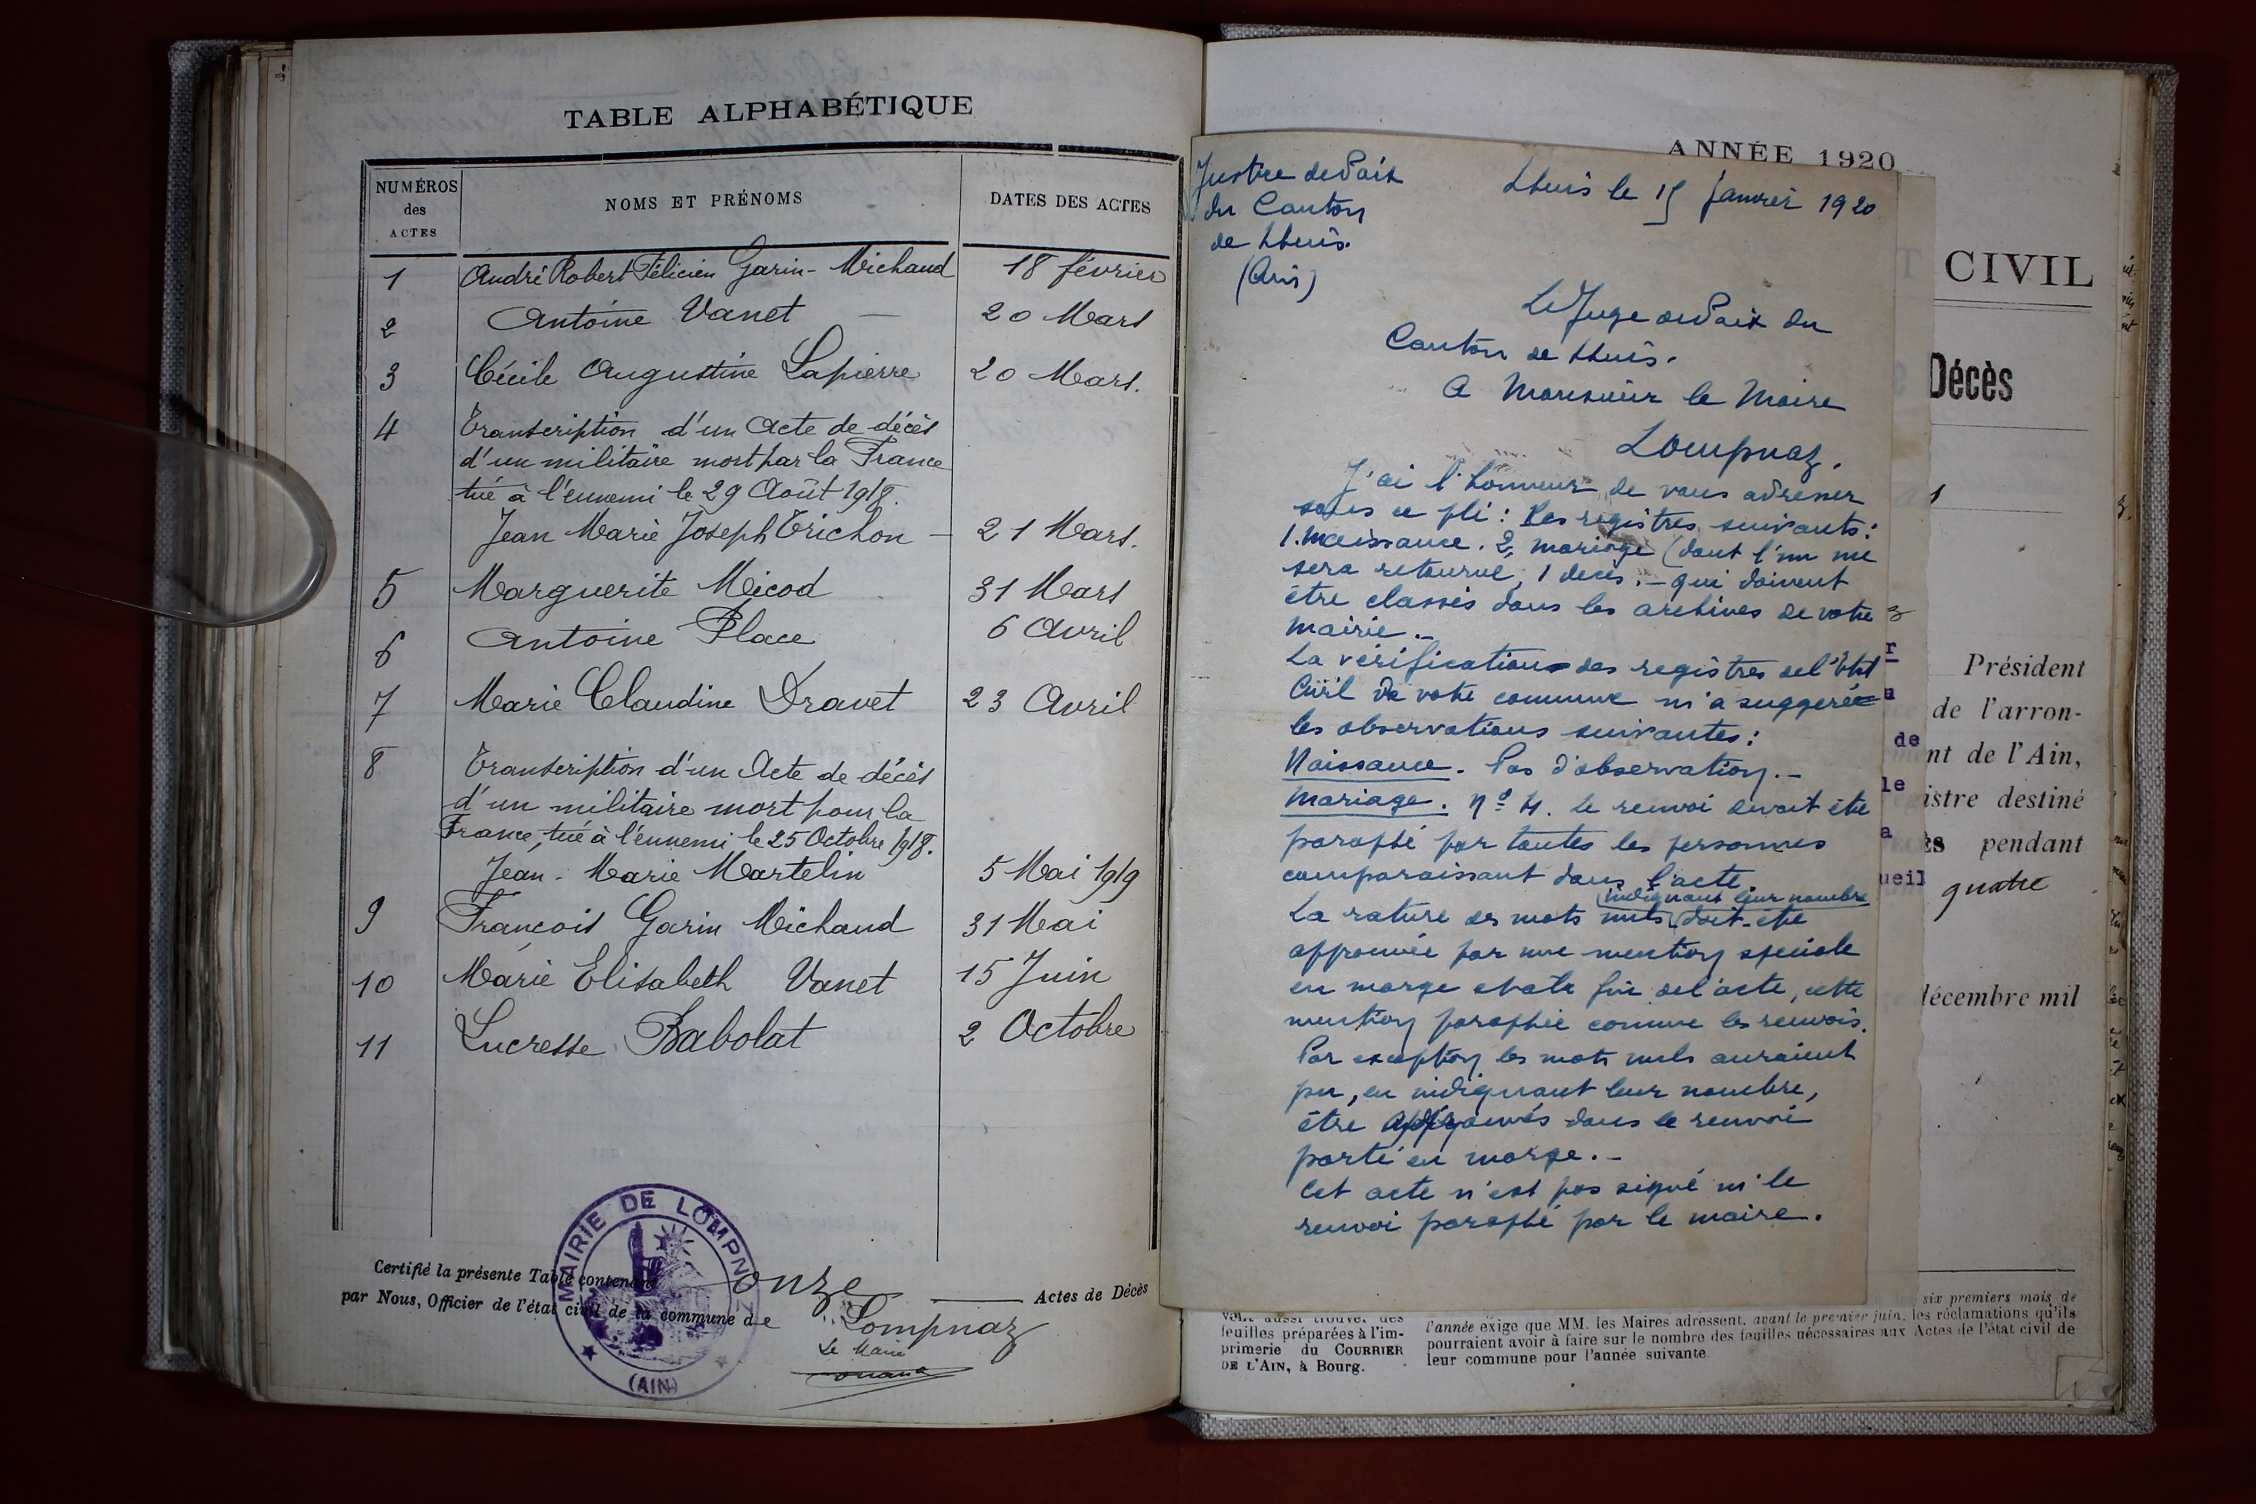 TABLE ALPHABÉTIQUE
NUMÉROS des ACTES
NOMS ET PRÉNOMS
DATES DES ACTES
1 André Robert Félicien Garin-Michaud 18 février
2 Antoine Vanet — 20 Mars
3 Cécile Augustine Lapierre 20 Mars.
4 Transcription d'un Acte de décès
d'un militaire mort par la France
tué à l'ennemi le 29 Août 1918.
Jean Marie Joseph Trichon — 21 Mars.
5 Marguerite Micod 31 Mars
6 Antoine Place 6 Avril
7 Marie Claudine Dravet 23 Avril
8 Transcription d'un Acte de décès
d'un militaire mort pour la
France, tué à l'ennemi le 25 Octobre 1918.
Jean-Marie Martelin 5 Mai 1919
9 François Garin Michaud 31 Mai
10 Marie Elisabeth Vanet 15 Juin
11 Lucresse Babolat 2 Octobre
MAIRIE DE LOMPNAZ
(AIN)
Certifié la présente Table contenant onze — Actes de Décès
par Nous, Officier de l'état civil de la commune de Lompnaz
Le Maire
Justice de Paix
du Canton
de Lhuis.
(Ain)
Lhuis le 15 janvier 1920
Le Juge de Paix du
Canton de Lhuis.
A Monsieur le Maire
Lompnaz.
J'ai l'honneur de vous adresser
sous ce pli : Les registres suivants :
1. naissance. 2, mariage (dont l'un me
sera retourné, 1 décès. — qui doivent
être classés dans les archives de votre
mairie. —
La vérification des registres de l'état
Civil de votre commune m'a suggéré
les observations suivantes :
Naissance. Pas d'observation. —
Mariage. Nº 4. le renvoi devait être
paraphé par toutes les personnes
comparaissant dans l'acte
La rature des mots nuls (indiquant leur nombre) doit-être
approuvée par une mention spéciale
en marge et à la fin de l'acte, cette
mention paraphée comme les renvois.
Par exception les mots nuls auraient
pu, en indiquant leur nombre,
être approuvés dans le renvoi
porté en marge. —
Cet acte n'est pas signé ni le
renvoi paraphé par le maire.
ANNÉE 1920
CIVIL
Décès
Président
de l'arron-
nt de l'Ain,
istre destiné
pendant
quatre
décembre mil
de
le
a
ueil
six premiers mois de
feuilles préparées à l'im-
primerie du COURRIER
DE L'AIN, à Bourg.
l'année exige que MM. les Maires adressent, avant le premier juin, les réclamations qu'ils
pourraient avoir à faire sur le nombre des feuilles nécessaires aux Actes de l'état civil de
leur commune pour l'année suivante